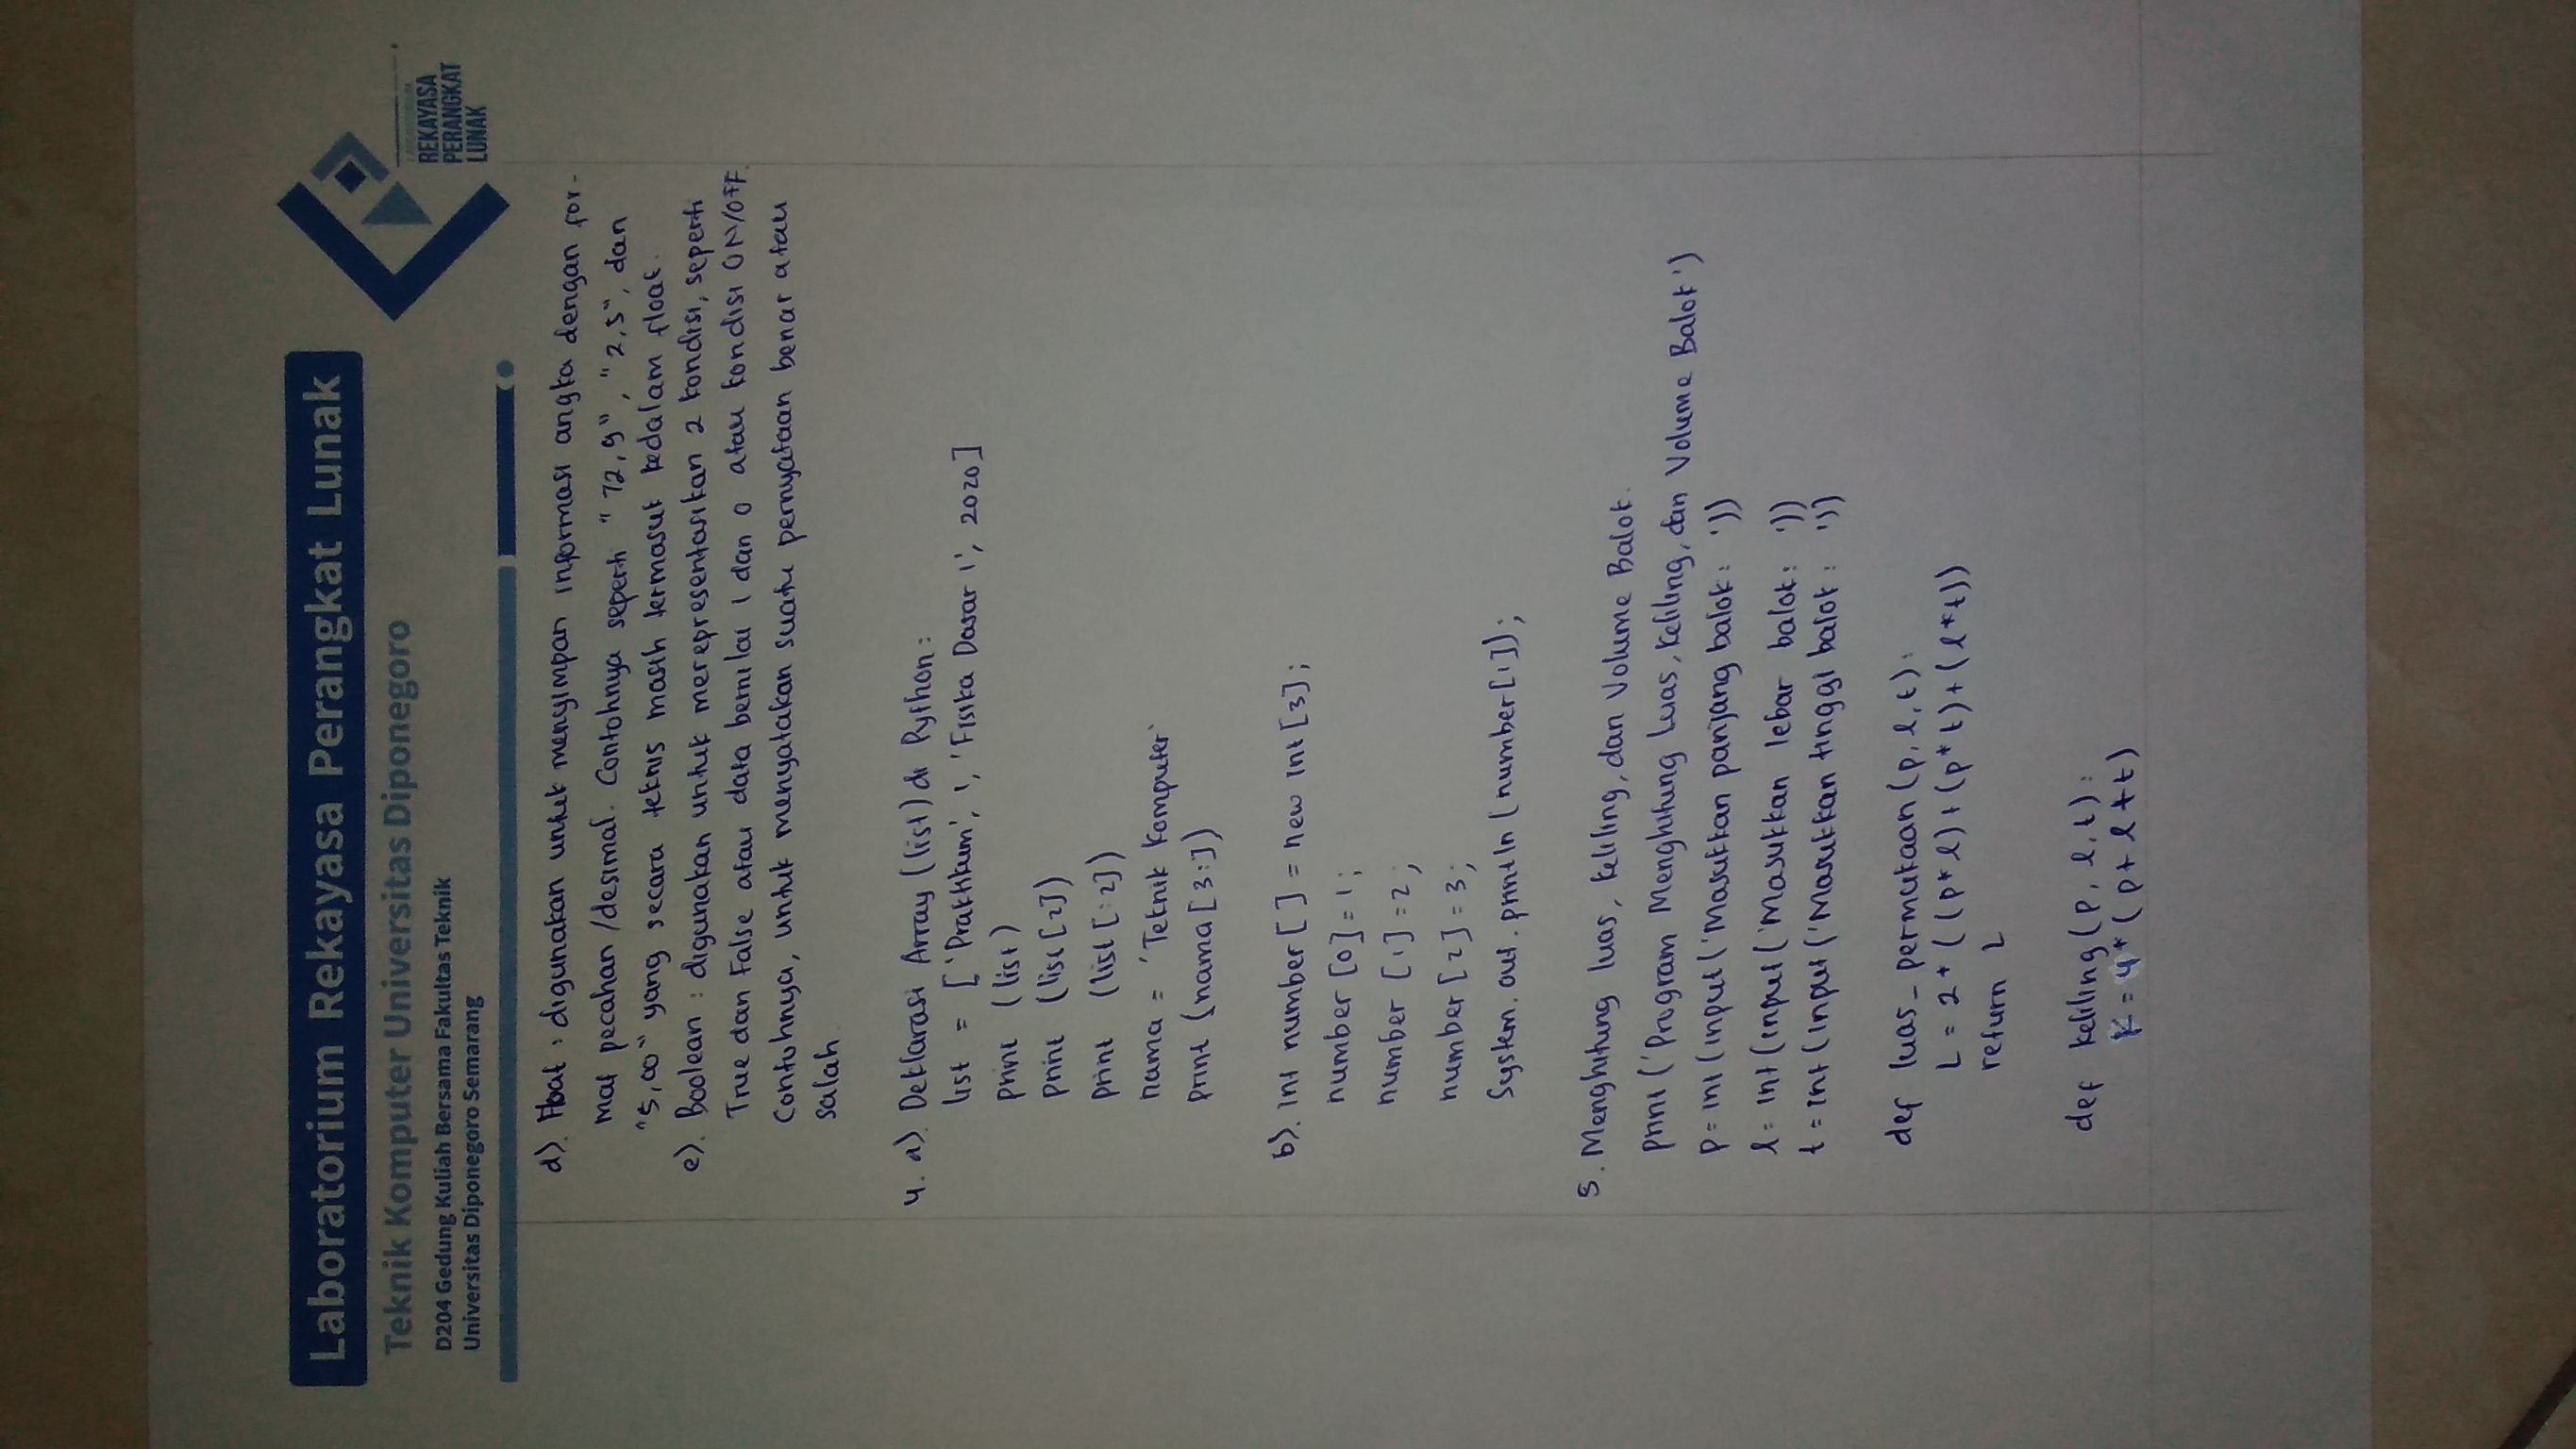 Laboratorium Rekayasa Perangkat Lunak
Teknik Komputer Universitas Diponegoro
D204 Gedung Kuliah Bersama Fakultas Teknik
Universitas Diponegoro Semarang
REKAYASA
PERANGKAT
LUNAK
d). Float : digunakan untuk menyimpan informasi angka dengan for-
mat pecahan/desimal. Contohnya seperti "72,9", "2,5", dan
"5,00" yang secara teknis masih termasuk kedalam float.
e). Boolean : digunakan untuk merepresentasikan 2 kondisi, seperti
True dan False atau data bernilai 1 dan 0 atau kondisi ON/OFF.
Contohnya, untuk menyatakan suatu pernyataan benar atau
salah.
4. a). Deklarasi Array (list) di Python :
list = ['Praktikum', 1, 'Fisika Dasar 1', 2020]
print (list)
print (list[2])
print (list[:2])
nama = 'Teknik Komputer'
print (nama[3:])
b). int number[] = new int[3];
number[0]=1;
number[1]=2;
number[2]=3;
System.out.println(number[1]);
5. Menghitung luas, keliling, dan Volume Balok.
print ('Program Menghitung Luas, Keliling, dan Volume Balok')
p = int (input ('Masukkan panjang balok : '))
l = int (input ('Masukkan lebar balok : '))
t = int (input ('Masukkan tinggi balok : '))
def luas_permukaan (p, l, t) :
L = 2* ((p*l) + (p*t) + (l*t))
return L
def keliling (p, l, t) :
K = 4* (p + l + t)